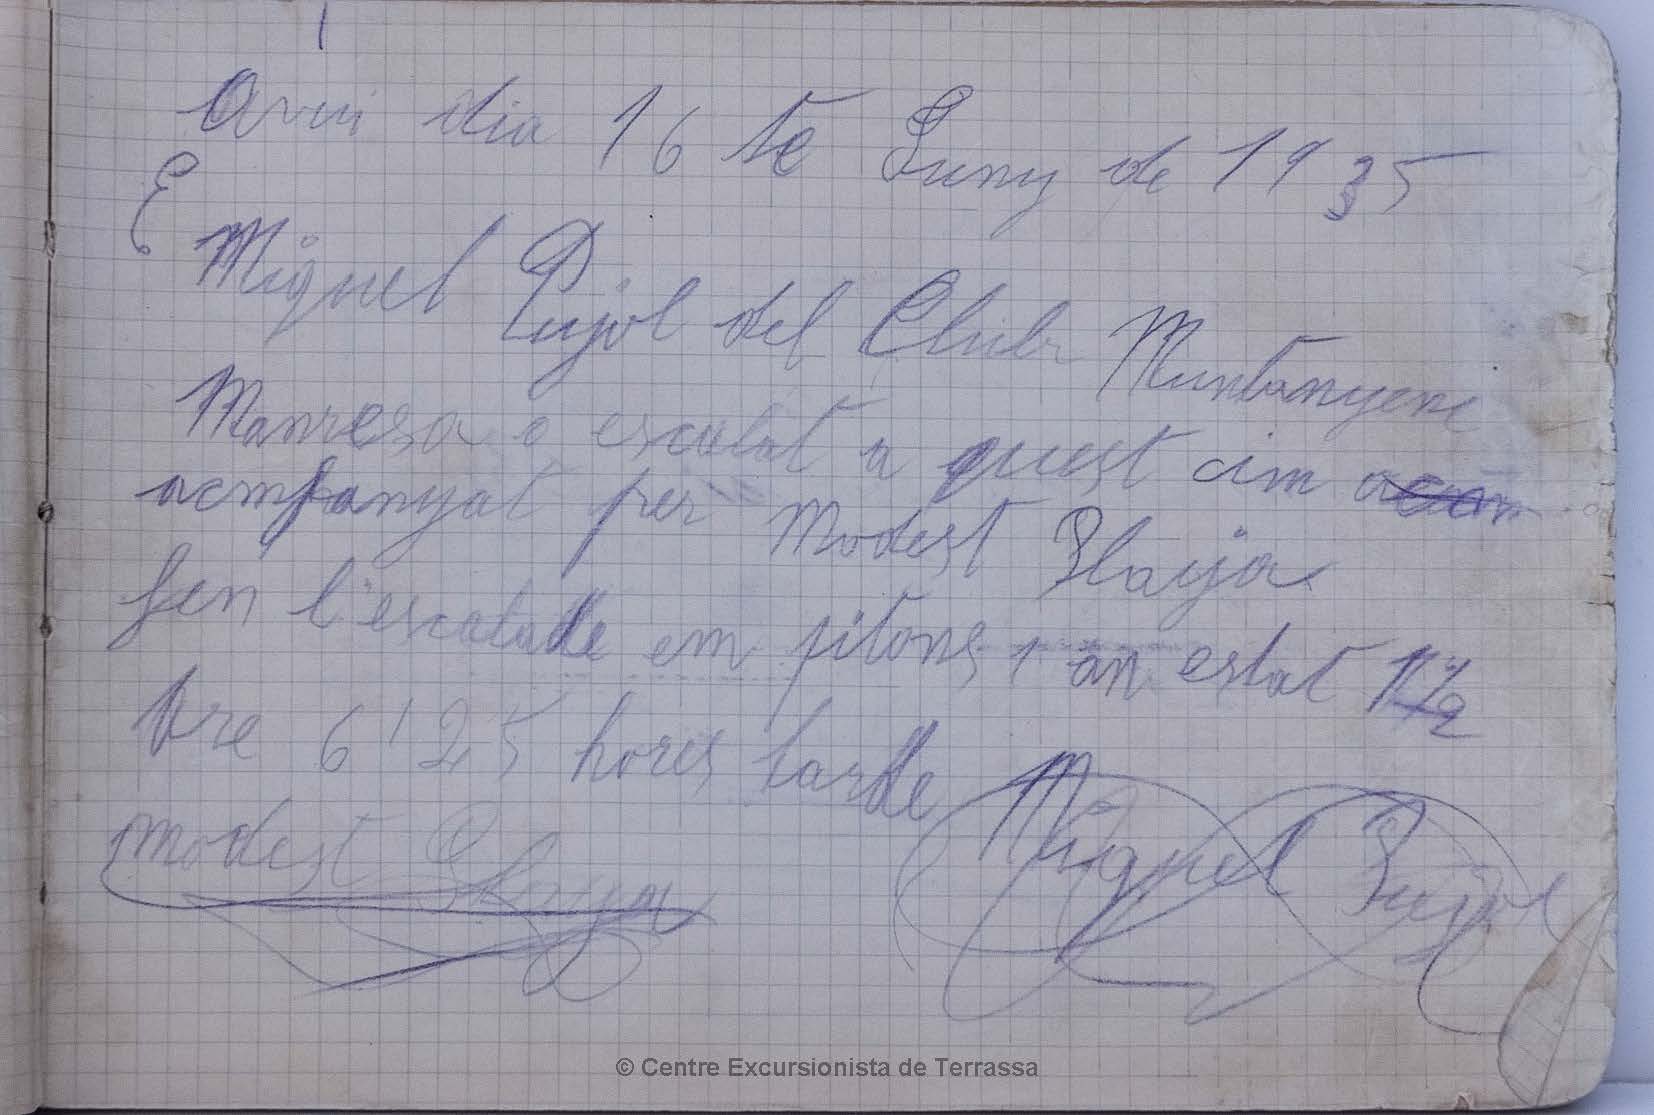 Avui dia 16 de Juny de 1935
E
Miquel Pujol del Club Muntanyenc
Manresa e escalat a quest cim
acmpanyat per Modest Playa
fen l'escalade em pitons i an estat 1 1/2
hre 6'25 hores tarde
Modest Playa Miquel Pujol
© Centre Excursionista de Terrassa